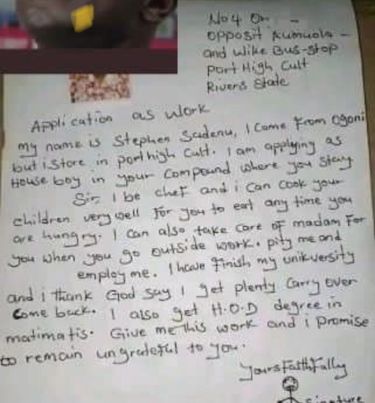 No 4 On
Opposit Rumuola
and Wike Bus-stop
Port High Cult
Rivers State
Application as work
my name is Stephen Sadenu, I Come From Ogoni
but i store in port high Cult. I am applying as
House boy in your Compound where you Stay
Sir, I be chef and i can cook your
children very well for you to eat any time you
are hungry. I can also take care of madam For
you when you go outside work. pity me and
employ me. I have finish my unikversity
and i thank God say I get plenty Carry over
Come back. I also get H.O.D degree in
matimatis. Give me this work and i promise
to remain ungrateful to you.
Yours Faithfally
Signature